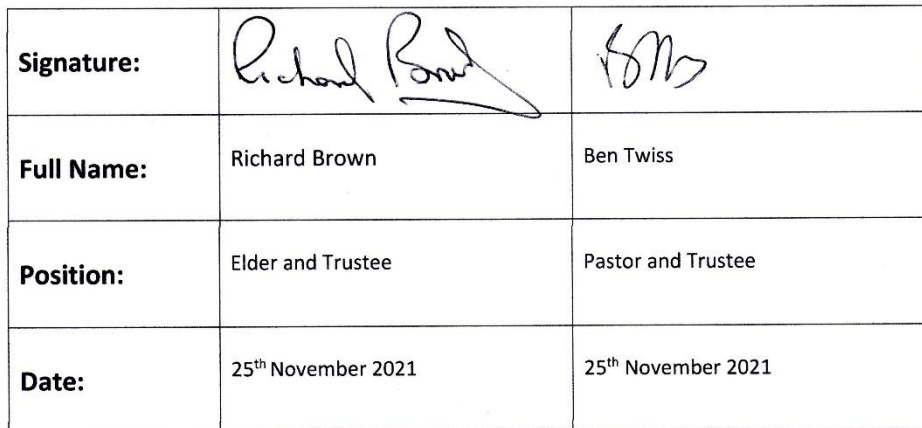 Signature: Richard Brown
Full Name: Richard Brown Ben Twiss
Position: Elder and Trustee Pastor and Trustee
Date: 25th November 2021 25th November 2021